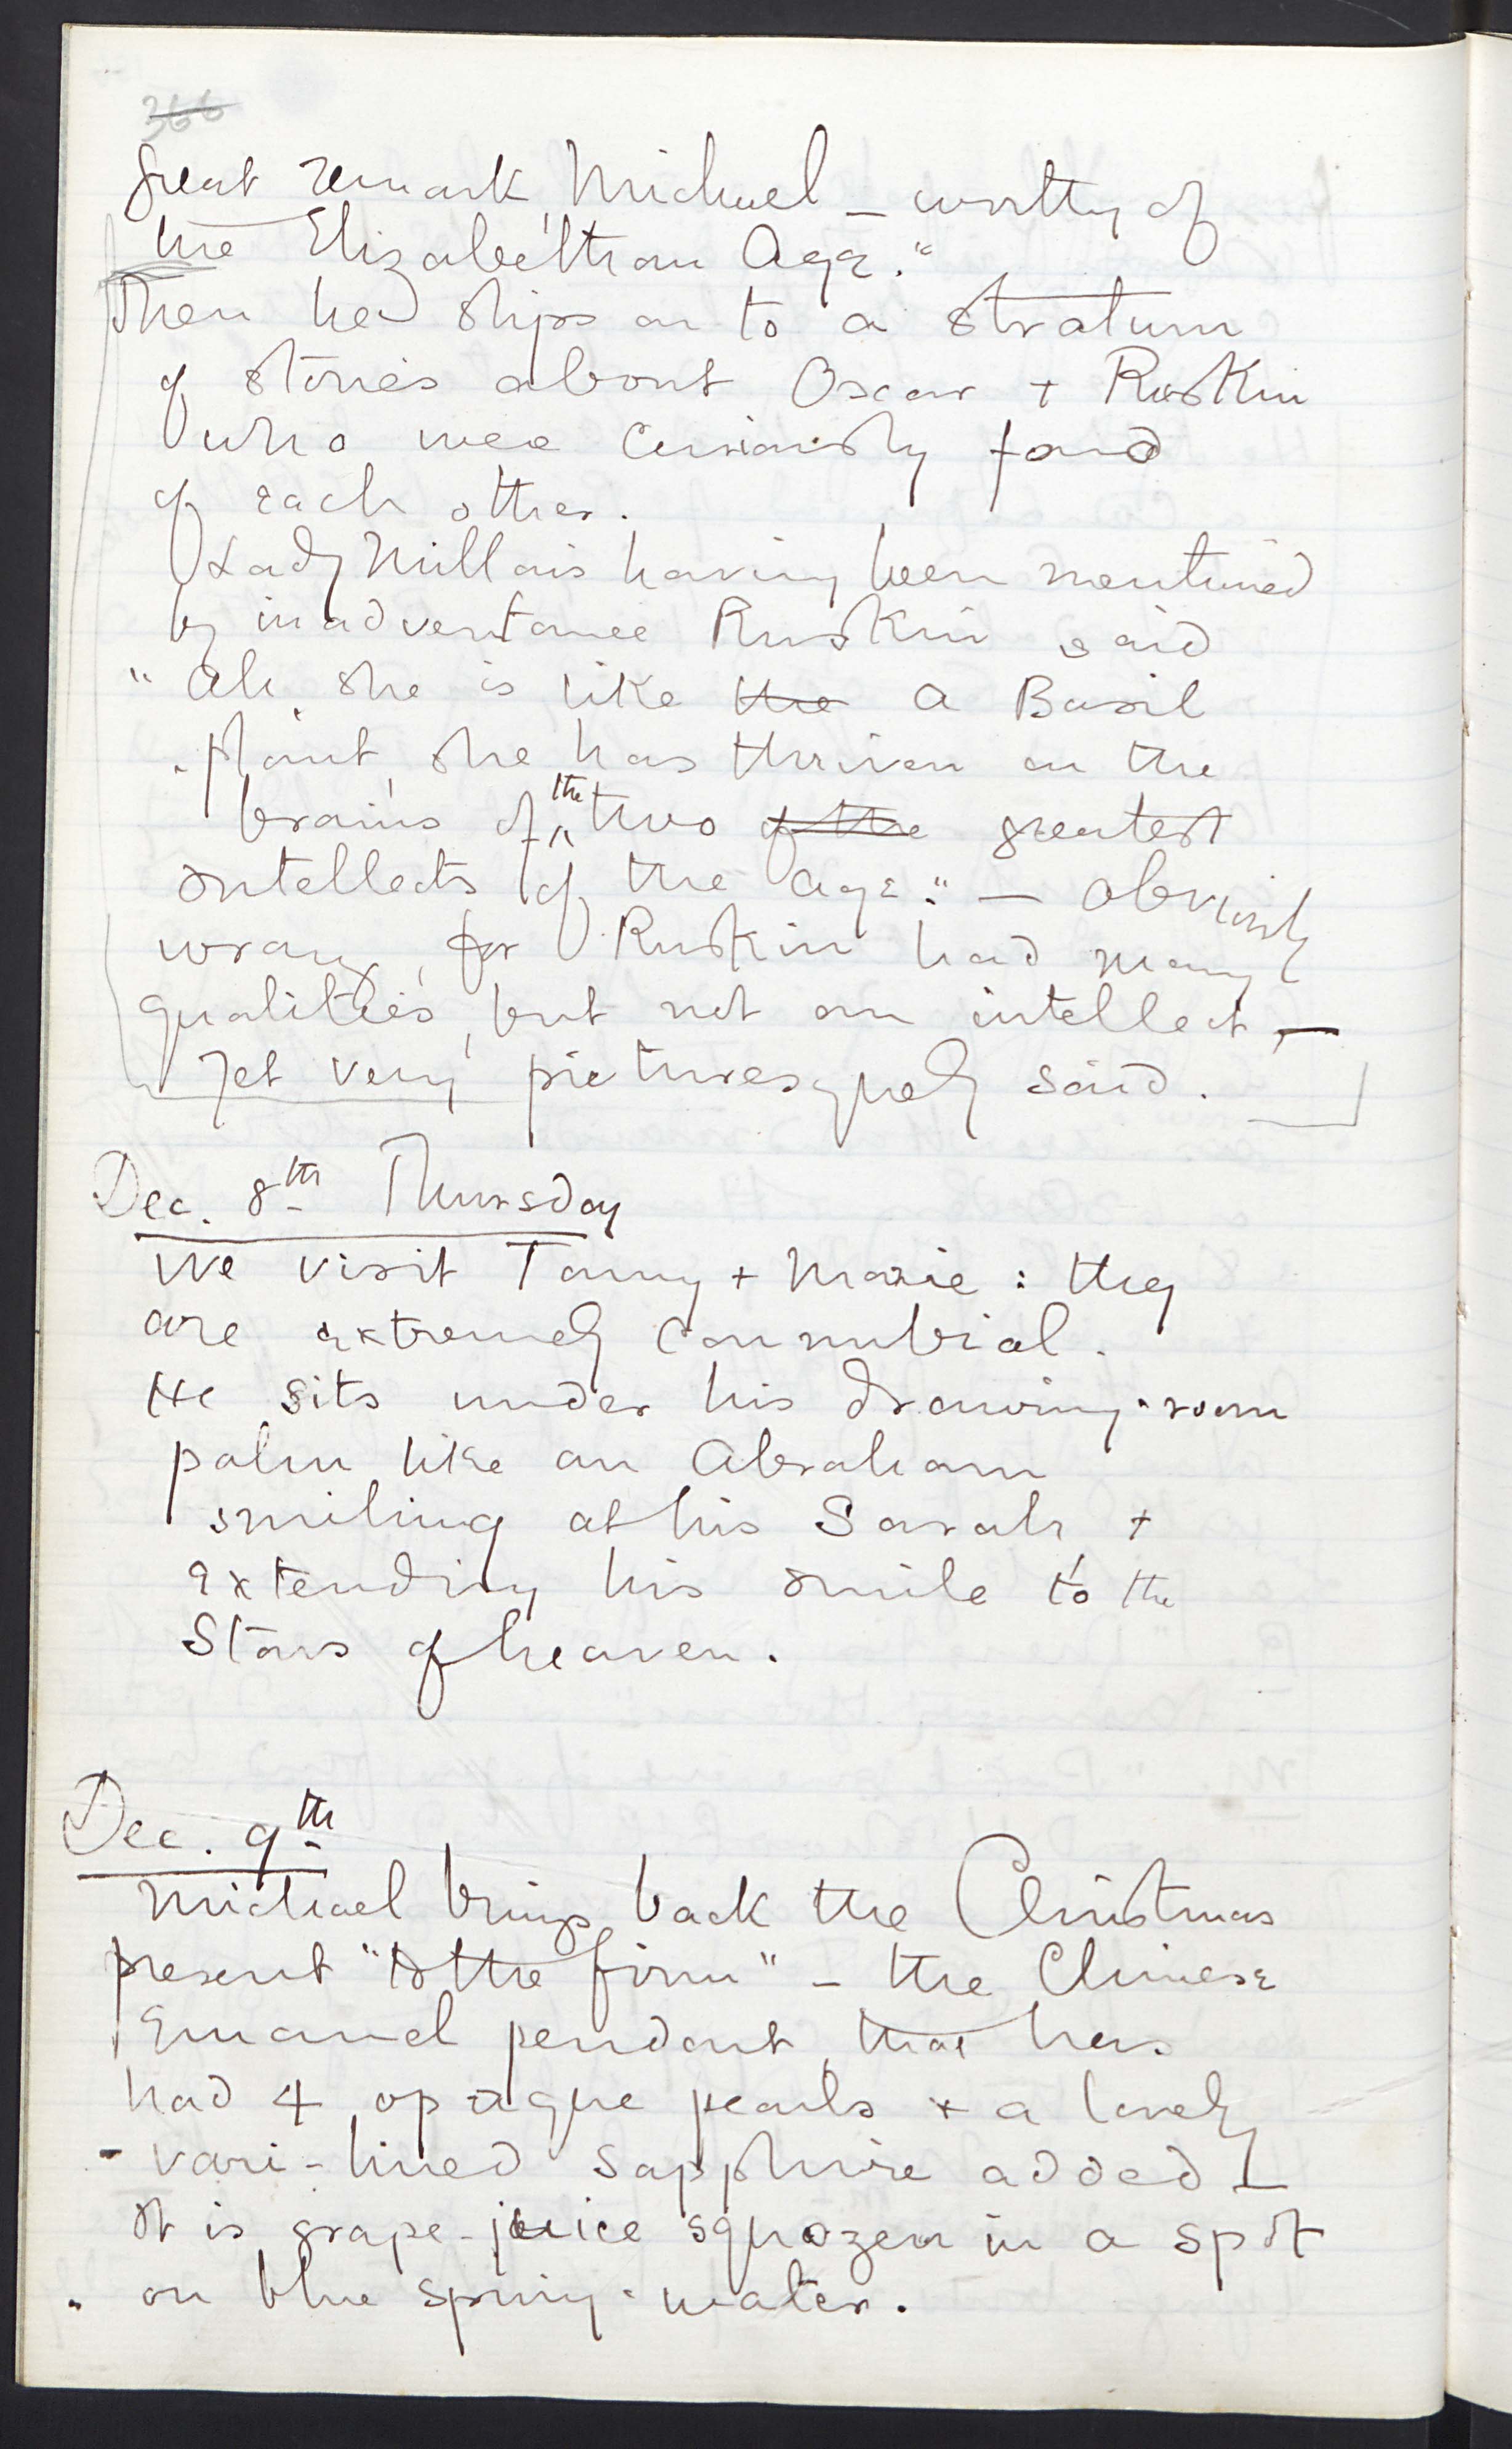 366
great remark, Michael – worthy of
the Elizabethan Age."
Then he slips on to a stratum
of stories about Oscar + Ruskin
who were curiously fond
of each other.
Lady Millais having been mentioned
by inadvertance Ruskin said
"Ah, she is like the a Basil
plant, she has thriven on the
brains of the two of the greatest
intellects of the age." – Obviously
wrong, for Ruskin had many
qualities, but not an intellect –
Yet very picturesquely said.
Dec. 8th Thursday
We visit Tommy + Marie: they
are extremely connubial.
He sits under his drawing-room
palm like an Abraham
smiling at his Sarah, +
extending his smile to the
Stars of heaven.
Dec. 9th
Michael brings back the Christmas
present "to the firm" – the Chinese
Enamel pendant, that has
had 4 opaque pearls + a lovely
vari-hued sapphire added –
It is grape-juice squozen in a spot
on blue spring-water.